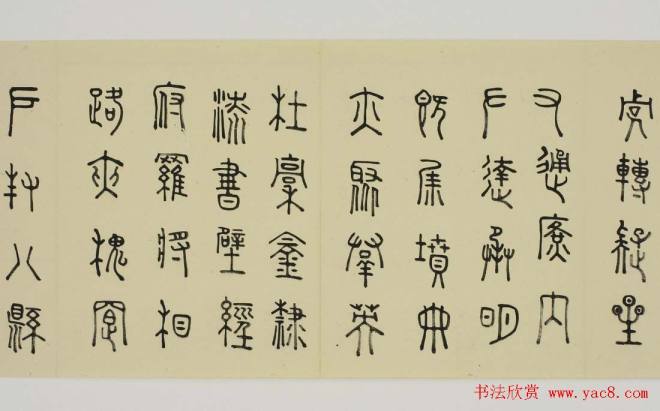 弁轉疑星
右通廣內
左達承明
既集墳典
亦聚群英
杜稾鍾隸
漆書壁經
府羅將相
路夾槐卿
戶封八縣
书法欣赏 www.yac8.com